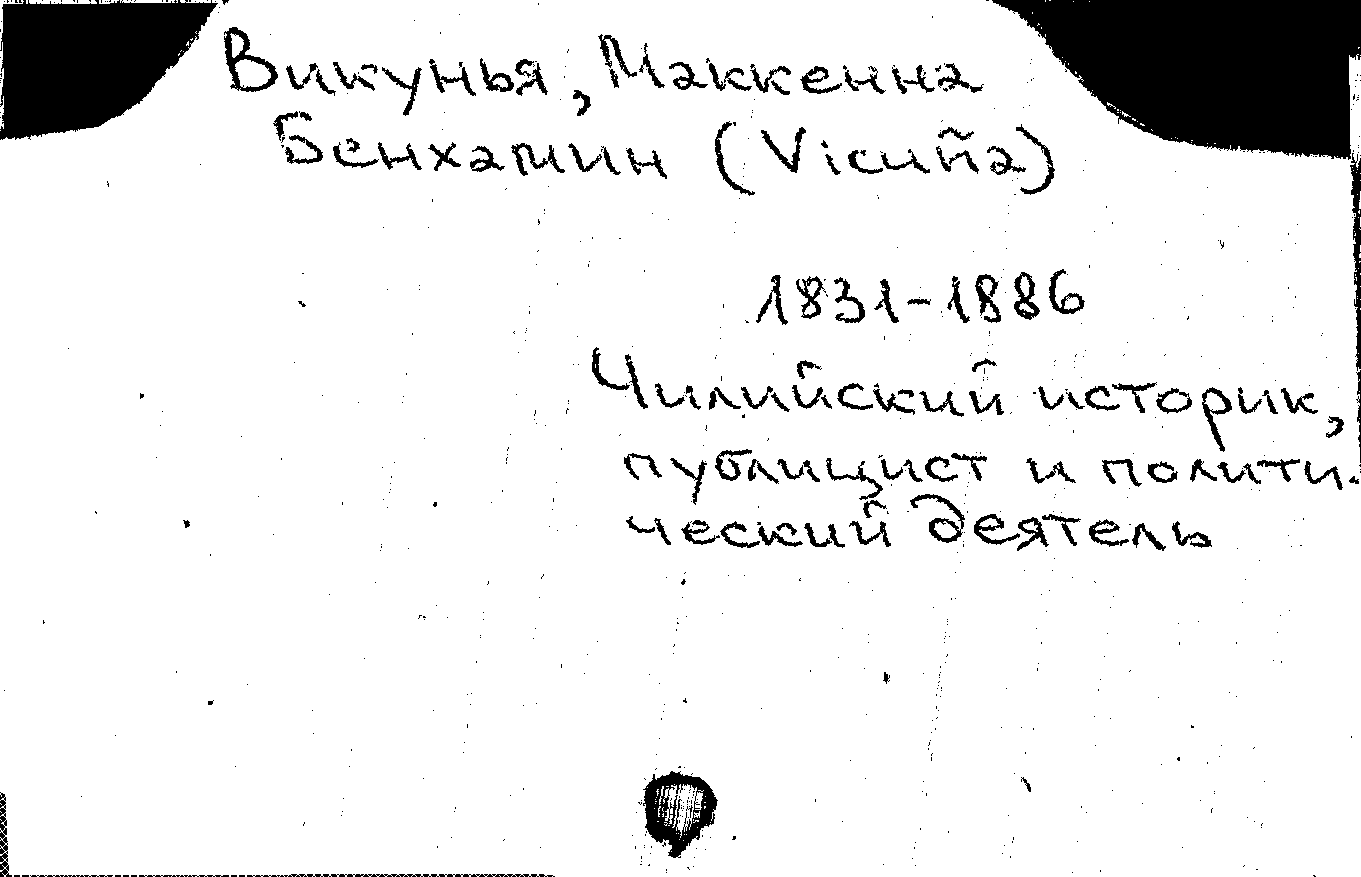 Викунья, Маккенна
Бенхамин (Vicuña)
1831-1886
Чилийский историк,
публицист и полити-
ческий деятель